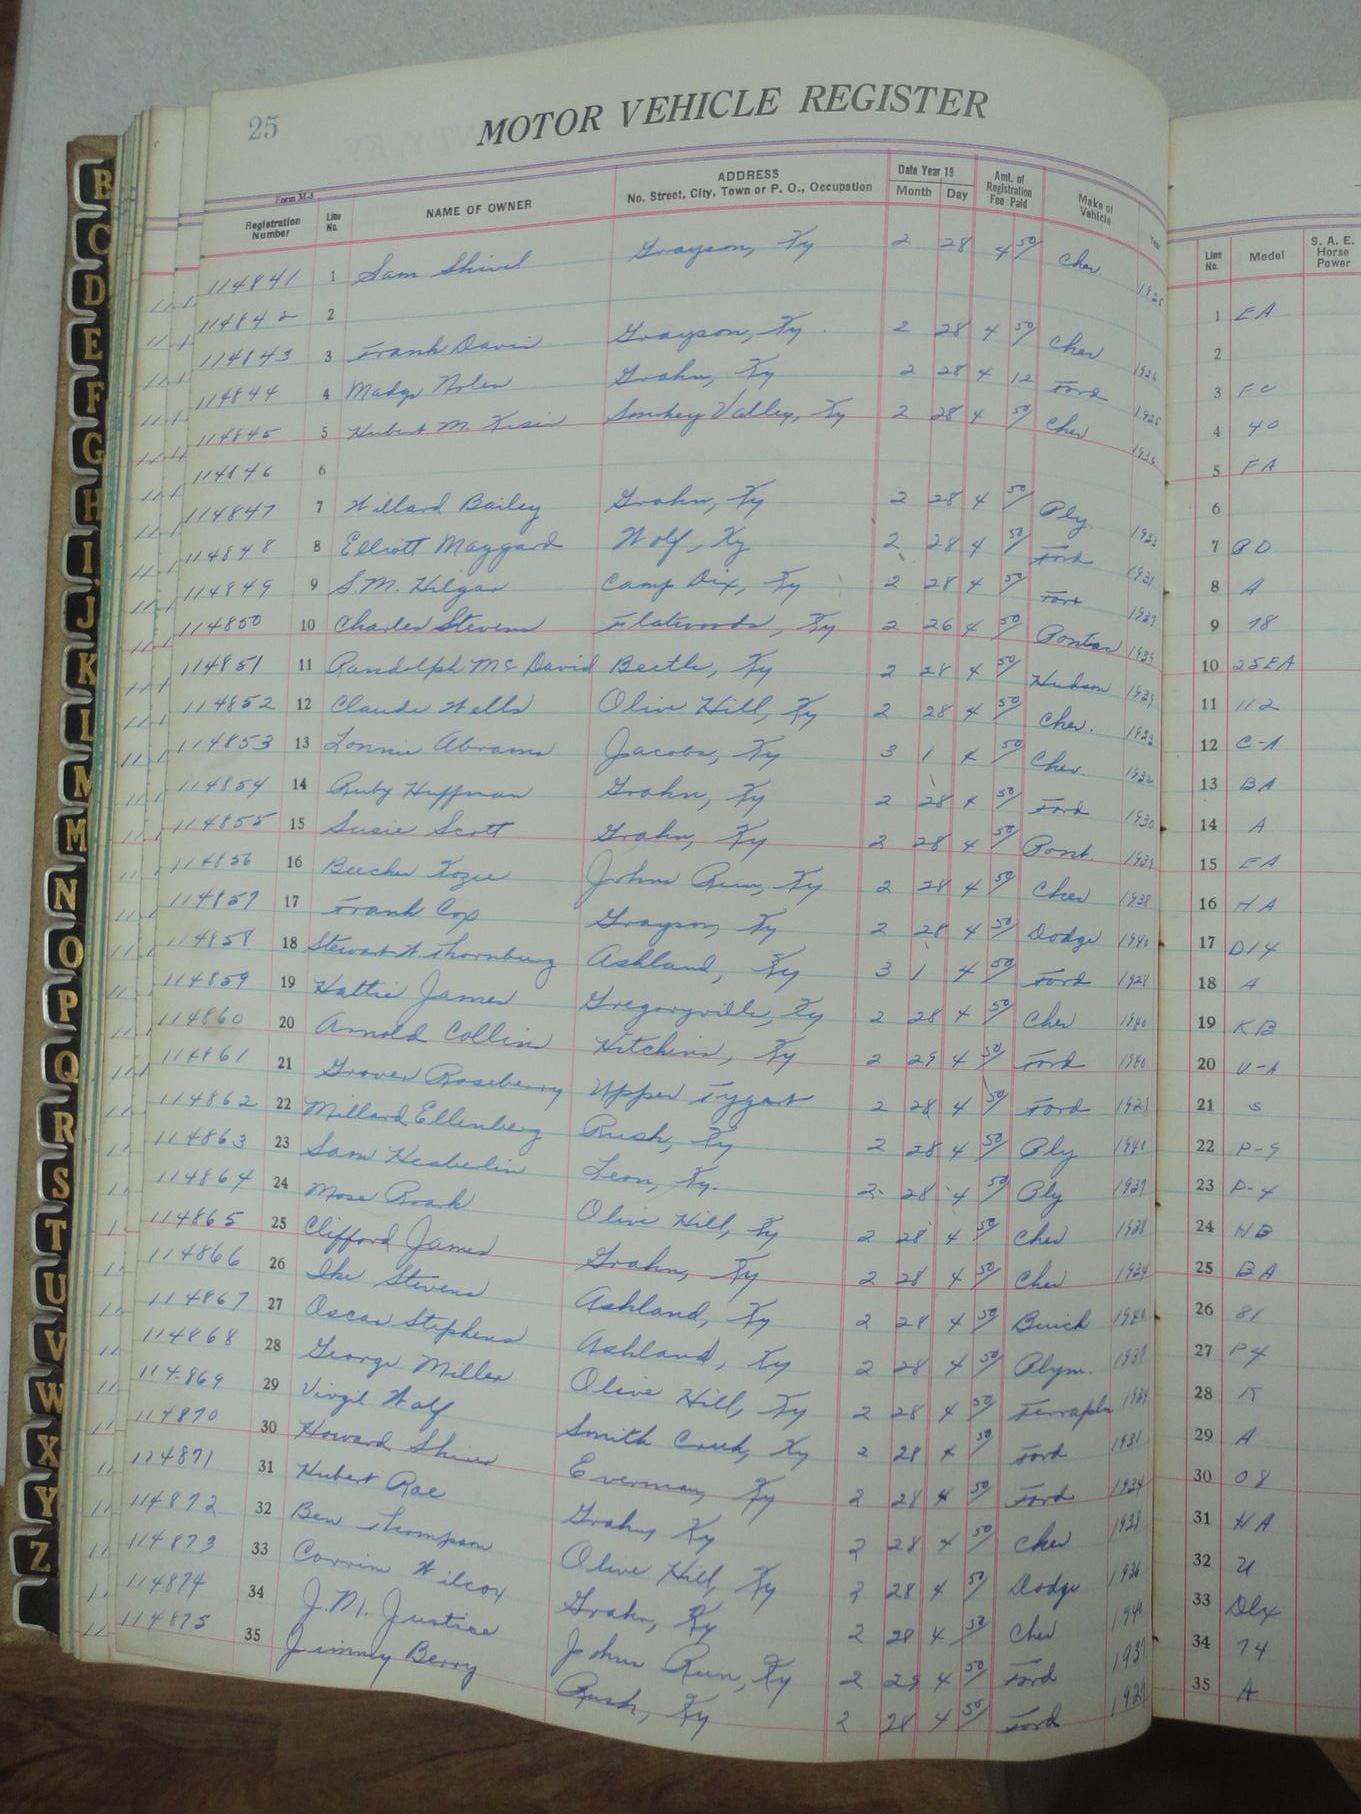 25
MOTOR VEHICLE REGISTER
Form M-5
Registration Number Line No. NAME OF OWNER ADDRESS No. Street, City, Town or P. O., Occupation Date Year 19 Month Day Amt. of Registration Fee Paid Make of Vehicle Line No. Model S. A. E. Horse Power
114841 1 Sam Grayson, Ky 2 28 4 50/ Chev. 1 EA
114842 2 2
114843 3 Frank Davis Grayson, Ky. 2 28 4 50/ Chev 3 FC
114844 4 Madge Nolen Grahn, Ky 2 28 4 12 Ford 4 40
114845 5 Hubert M. Kiser Smokey Valley, Ky 2 28 4 50/ Chev 5 FA
114846 6 6
114847 7 Willard Bailey Grahn, Ky 2 28 4 50/ Ply. 1933 7 PD
114848 8 Elliott Maggard Wolf, Ky 2 28 4 50/ Ford 1931 8 A
114849 9 S.M. Hilgar Camp Dix, Ky 2 28 4 50/ Ford 1937 9 78
114850 10 Charles Stevens Flatwoods, Ky 2 26 4 50/ Pontiac 1939 10 25EA
114851 11 Randolph McDavid Beetle, Ky 2 28 4 50/ Hudson 1939 11 112
114852 12 Claude Wells Olive Hill, Ky 2 28 4 50/ Chev. 1933 12 C-A
114853 13 Lonnie Abrams Jacobs, Ky 3 1 4 50/ Chev. 1932 13 BA
114854 14 Ruby Huffman Grahn, Ky 2 28 4 50/ Ford 1930 14 A
114855 15 Susie Scott Grahn, Ky 2 28 4 50/ Pont. 1939 15 EA
114856 16 Beecher Kozee Johns Run, Ky 2 28 4 50/ Chev 1938 16 HA
114857 17 Frank Cox Grayson, Ky 2 28 4 50/ Dodge 1940 17 D14
114858 18 Stewart W Thornburg Ashland, Ky 3 1 4 50/ Ford 1928 18 A
114859 19 Hattie James Gregoryville, Ky 2 28 4 50/ Chev 1940 19 KB
114860 20 Arnold Collins Hitchins, Ky 2 29 4 50/ Ford 1940 20 U-A
114861 21 Grover Roseberry Upper Tygart 2 28 4 50/ Ford 21 S
114862 22 Millard Ellenberg Rush, Ky 2 28 4 50/ Ply 1940 22 P-9
114863 23 Sam Heaberlin Leon, Ky. 2 28 4 50/ Ply 1937 23 P-4
114864 24 Mose Roark Olive Hill, Ky 2 28 4 50/ Chev 1938 24 HB
114865 25 Clifford James Grahn, Ky 2 28 4 50/ Chev 25 BA
114866 26 Ike Stevens Ashland, Ky 2 28 4 50/ Buick 1940 26 81
114867 27 Oscar Stephens Ashland, Ky 2 28 4 50/ Plym. 1937 27 P4
114868 28 George Miller Olive Hill, Ky 2 28 4 50/ Terrapln 1934 28 K
114869 29 Virgil Wolf Smith Creek, Ky 2 28 4 50 Ford 1931 29 A
114870 30 Howard Everman, Ky 2 28 4 50/ Ford 1934 30 08
114871 31 Hubert Roe Grahn, Ky 2 28 4 50/ Chev 1938 31 HA
114872 32 Ben Thompson Olive Hill, Ky 2 28 4 50/ Dodge 1936 32 U
114873 33 Corrin Wilcox Grahn, Ky 2 28 4 50/ Chev 33 Dlx
114874 34 J.M. Justice Johns Run, Ky 2 29 4 50/ Ford 1937 34 74
114875 35 Jimmy Berry Rush, Ky 2 28 4 50/ Ford 1929 35 A
B
C
D
E
F
G
H
I
J
K
L
M
M
N
O
P
Q
R
S
T
U
V
W
X
Y
Z